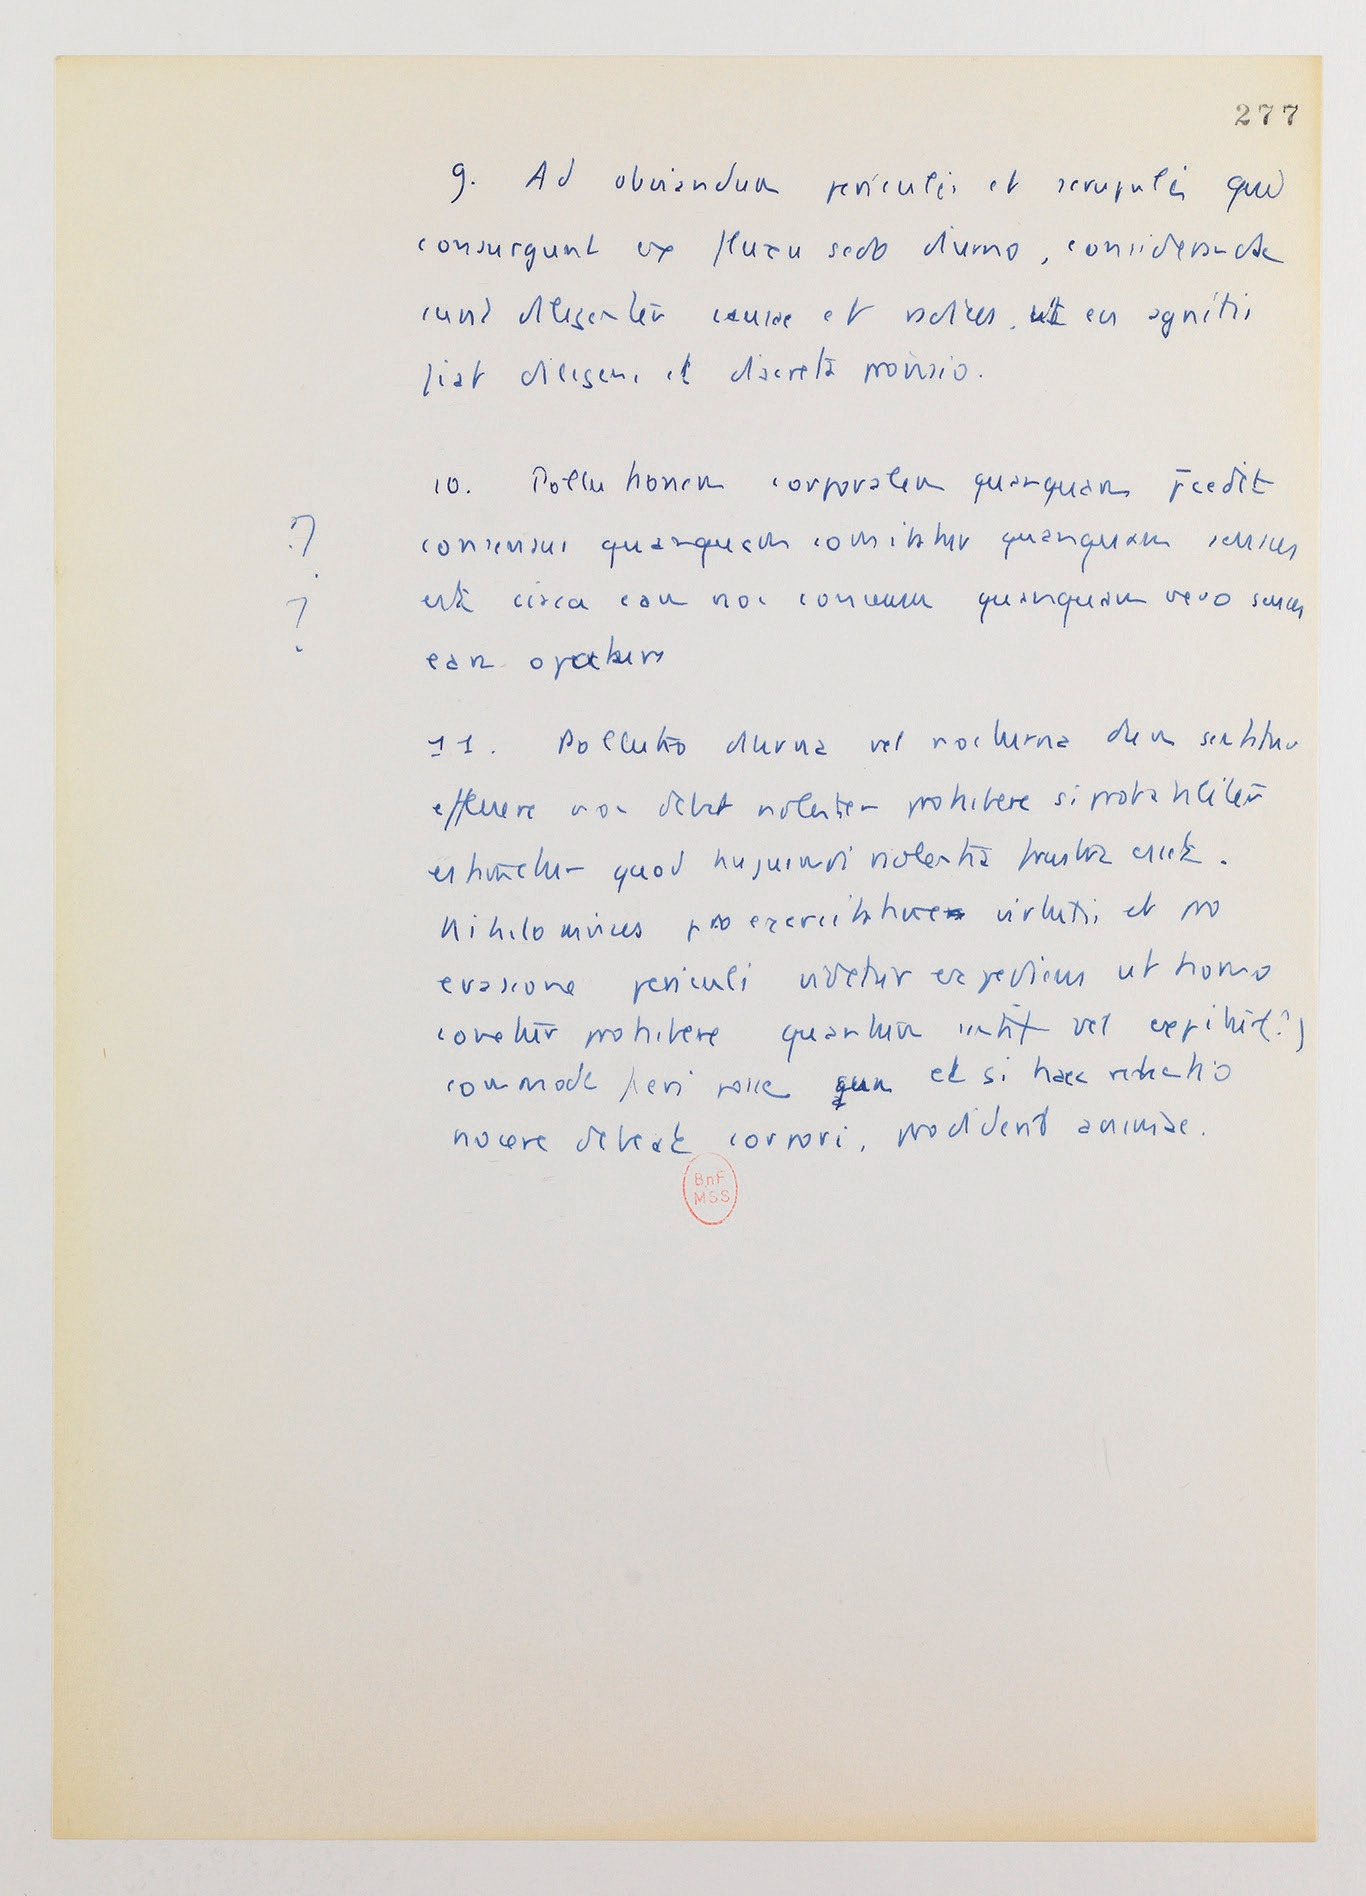 277
9. Ad obviandum periculis et scrupulis qui
consurgunt ex fluxu sedo diurno, considerandae
sunt diligenter causae et radices, ut eis agnitis
fiat diligens et discreta provisio.
10. Pollutionem corporalem quanquam
consensus quanquam comitatur quanquam
circa eam non quanquam vero
eam
? ?
11. Pollutio diurna vel nocturna dum sentitur
effluere non debet violenter prohibere si probabiliter
quod hujusmodi violentia frustra esset.
Nihilominus pro exercitatione virtutis et pro
evasione periculi videtur expediens ut homo
conetur prohibere quantum vel
commode fieri posse et si haec retentio
nocere debeat corpori, animae.
BnF
MSS